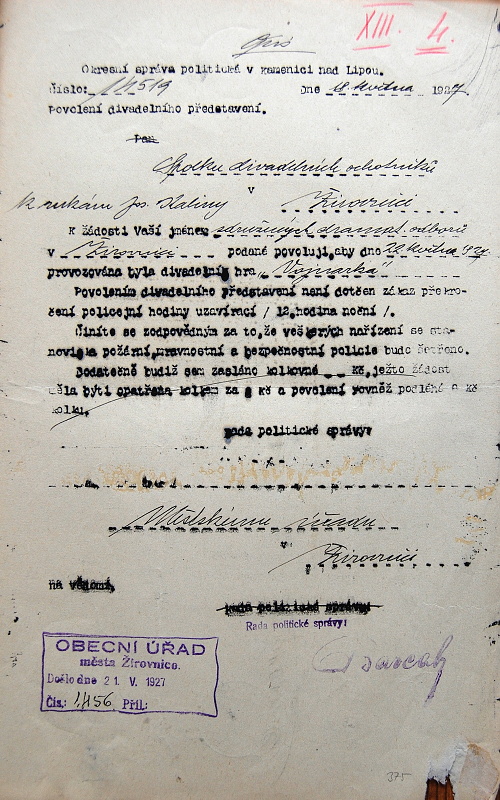 XIII. 4.
Okresní správa politická v kamenici nad Lipou.
Číslo: 14519 Dne 18. května 1927
Povolení divadelního představení.
Pan
Spolku divadelních ochotníků
v
k rukám Jos. Kaliny Žirovnici
K žádosti Vaší jménem sdružených dramat. odborů
v Žirovnici podané povoluji, aby dne 22. května 1927
provozována byla divadelní hra "Vojnarka"
Povolením divadelního představení není dotčen zákaz překro-
čení policejní hodiny uzavírací / 12. hodina noční /.
Činíte se zodpovědným za to, že veškerých nařízení se sta-
noviska požární, mravnostní a bezpečnostní policie bude šetřeno.
Dodatečně budiž sem zasláno kolkovné kč, ježto žádost
měla býti opatřena kolkem za kč a povolení rovněž podléhá kč
kolku.
Rada politické správy:
Městskému úřadu
v
Žirovnici
na vědomí.
Rada politické správy:
Rada politické správy:
OBECNÍ ÚŘAD
města Žirovnice.
Došlo dne 21. V. 1927
Čís.: 1456 Příl.:
375